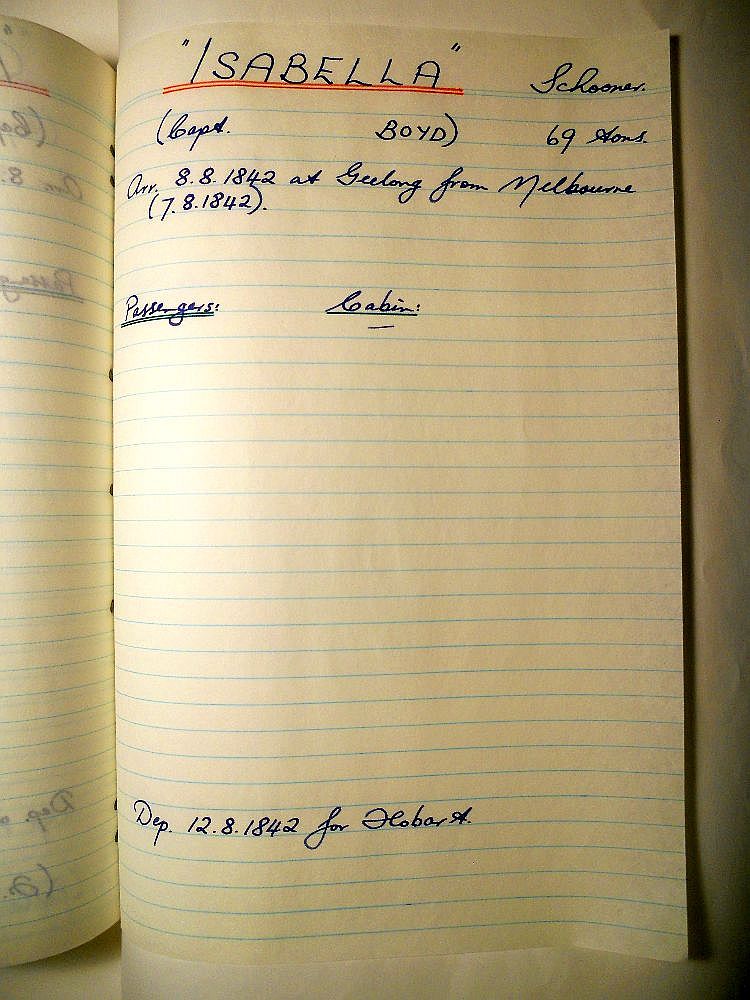 "ISABELLA" Schooner.
(Capt. BOYD) 69 tons.
Arr. 8.8.1842 at Geelong from Melbourne
(7.8.1842).
Passengers: Cabin:
Dep. 12.8.1842 for Hobart.